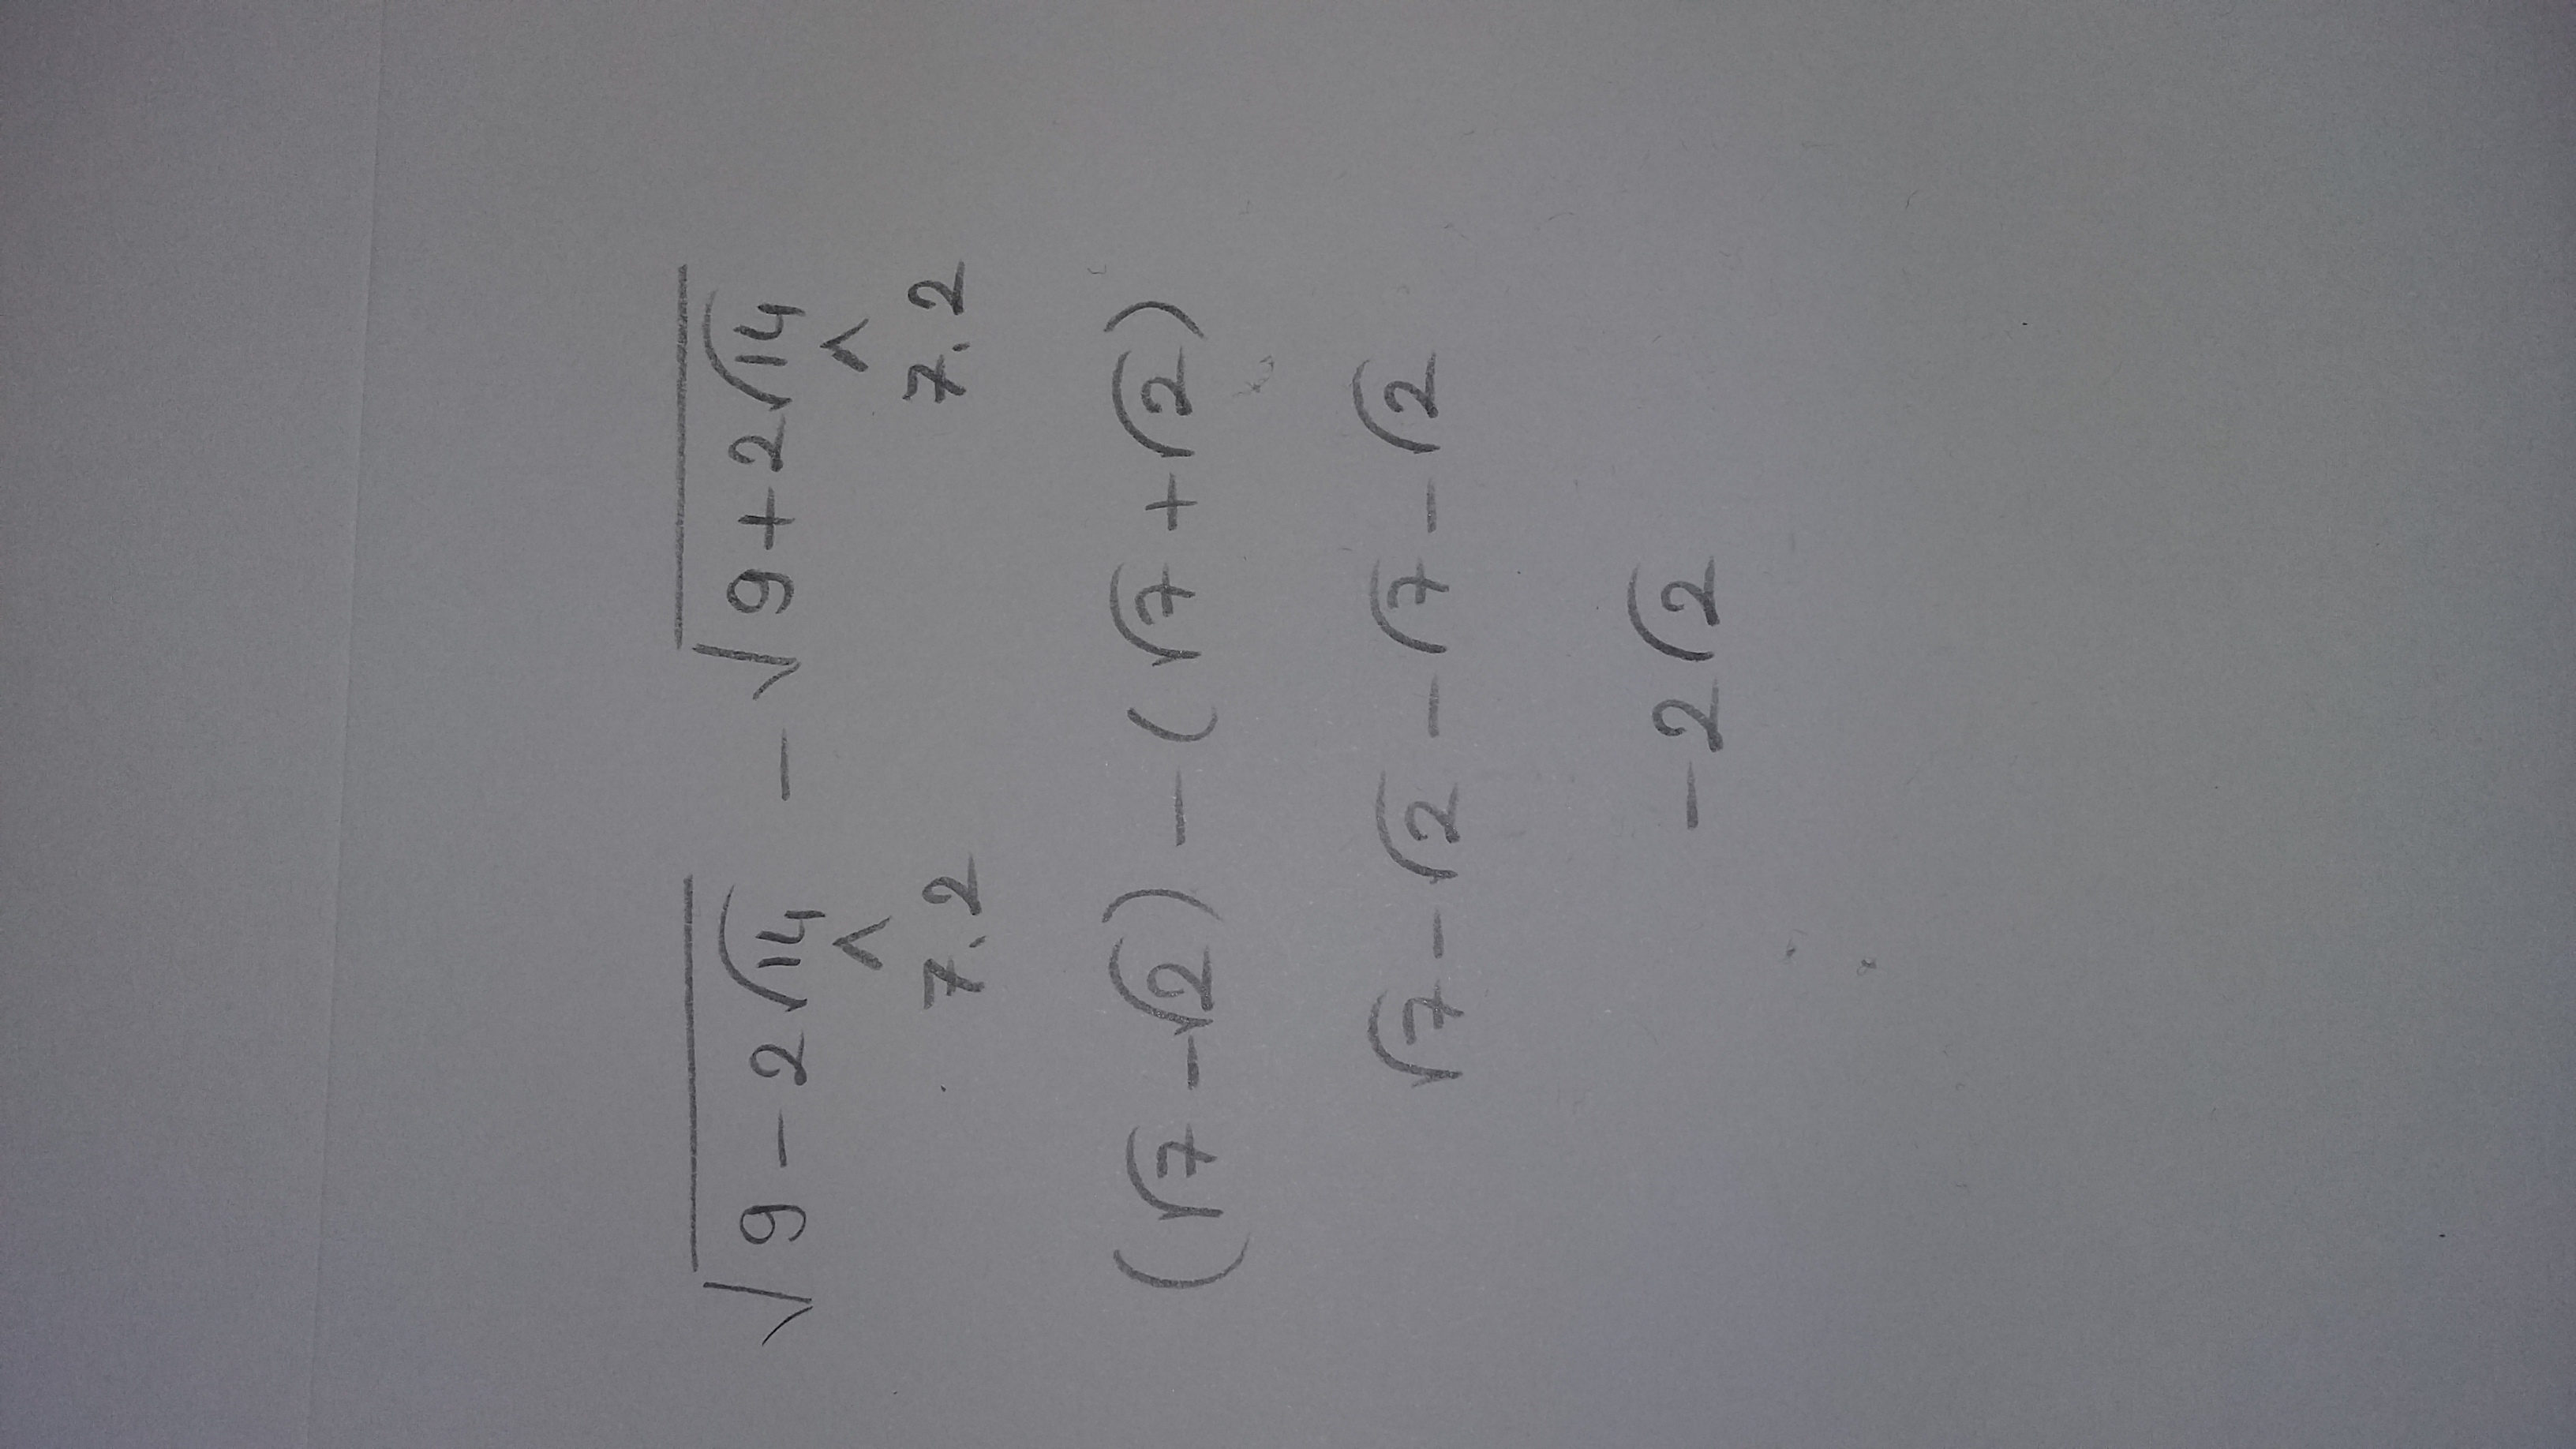 √(9-2√14) - √(9+2√14)
^ ^
7.2 7.2
(√7-√2) - (√7+√2)
√7-√2-√7-√2
-2√2